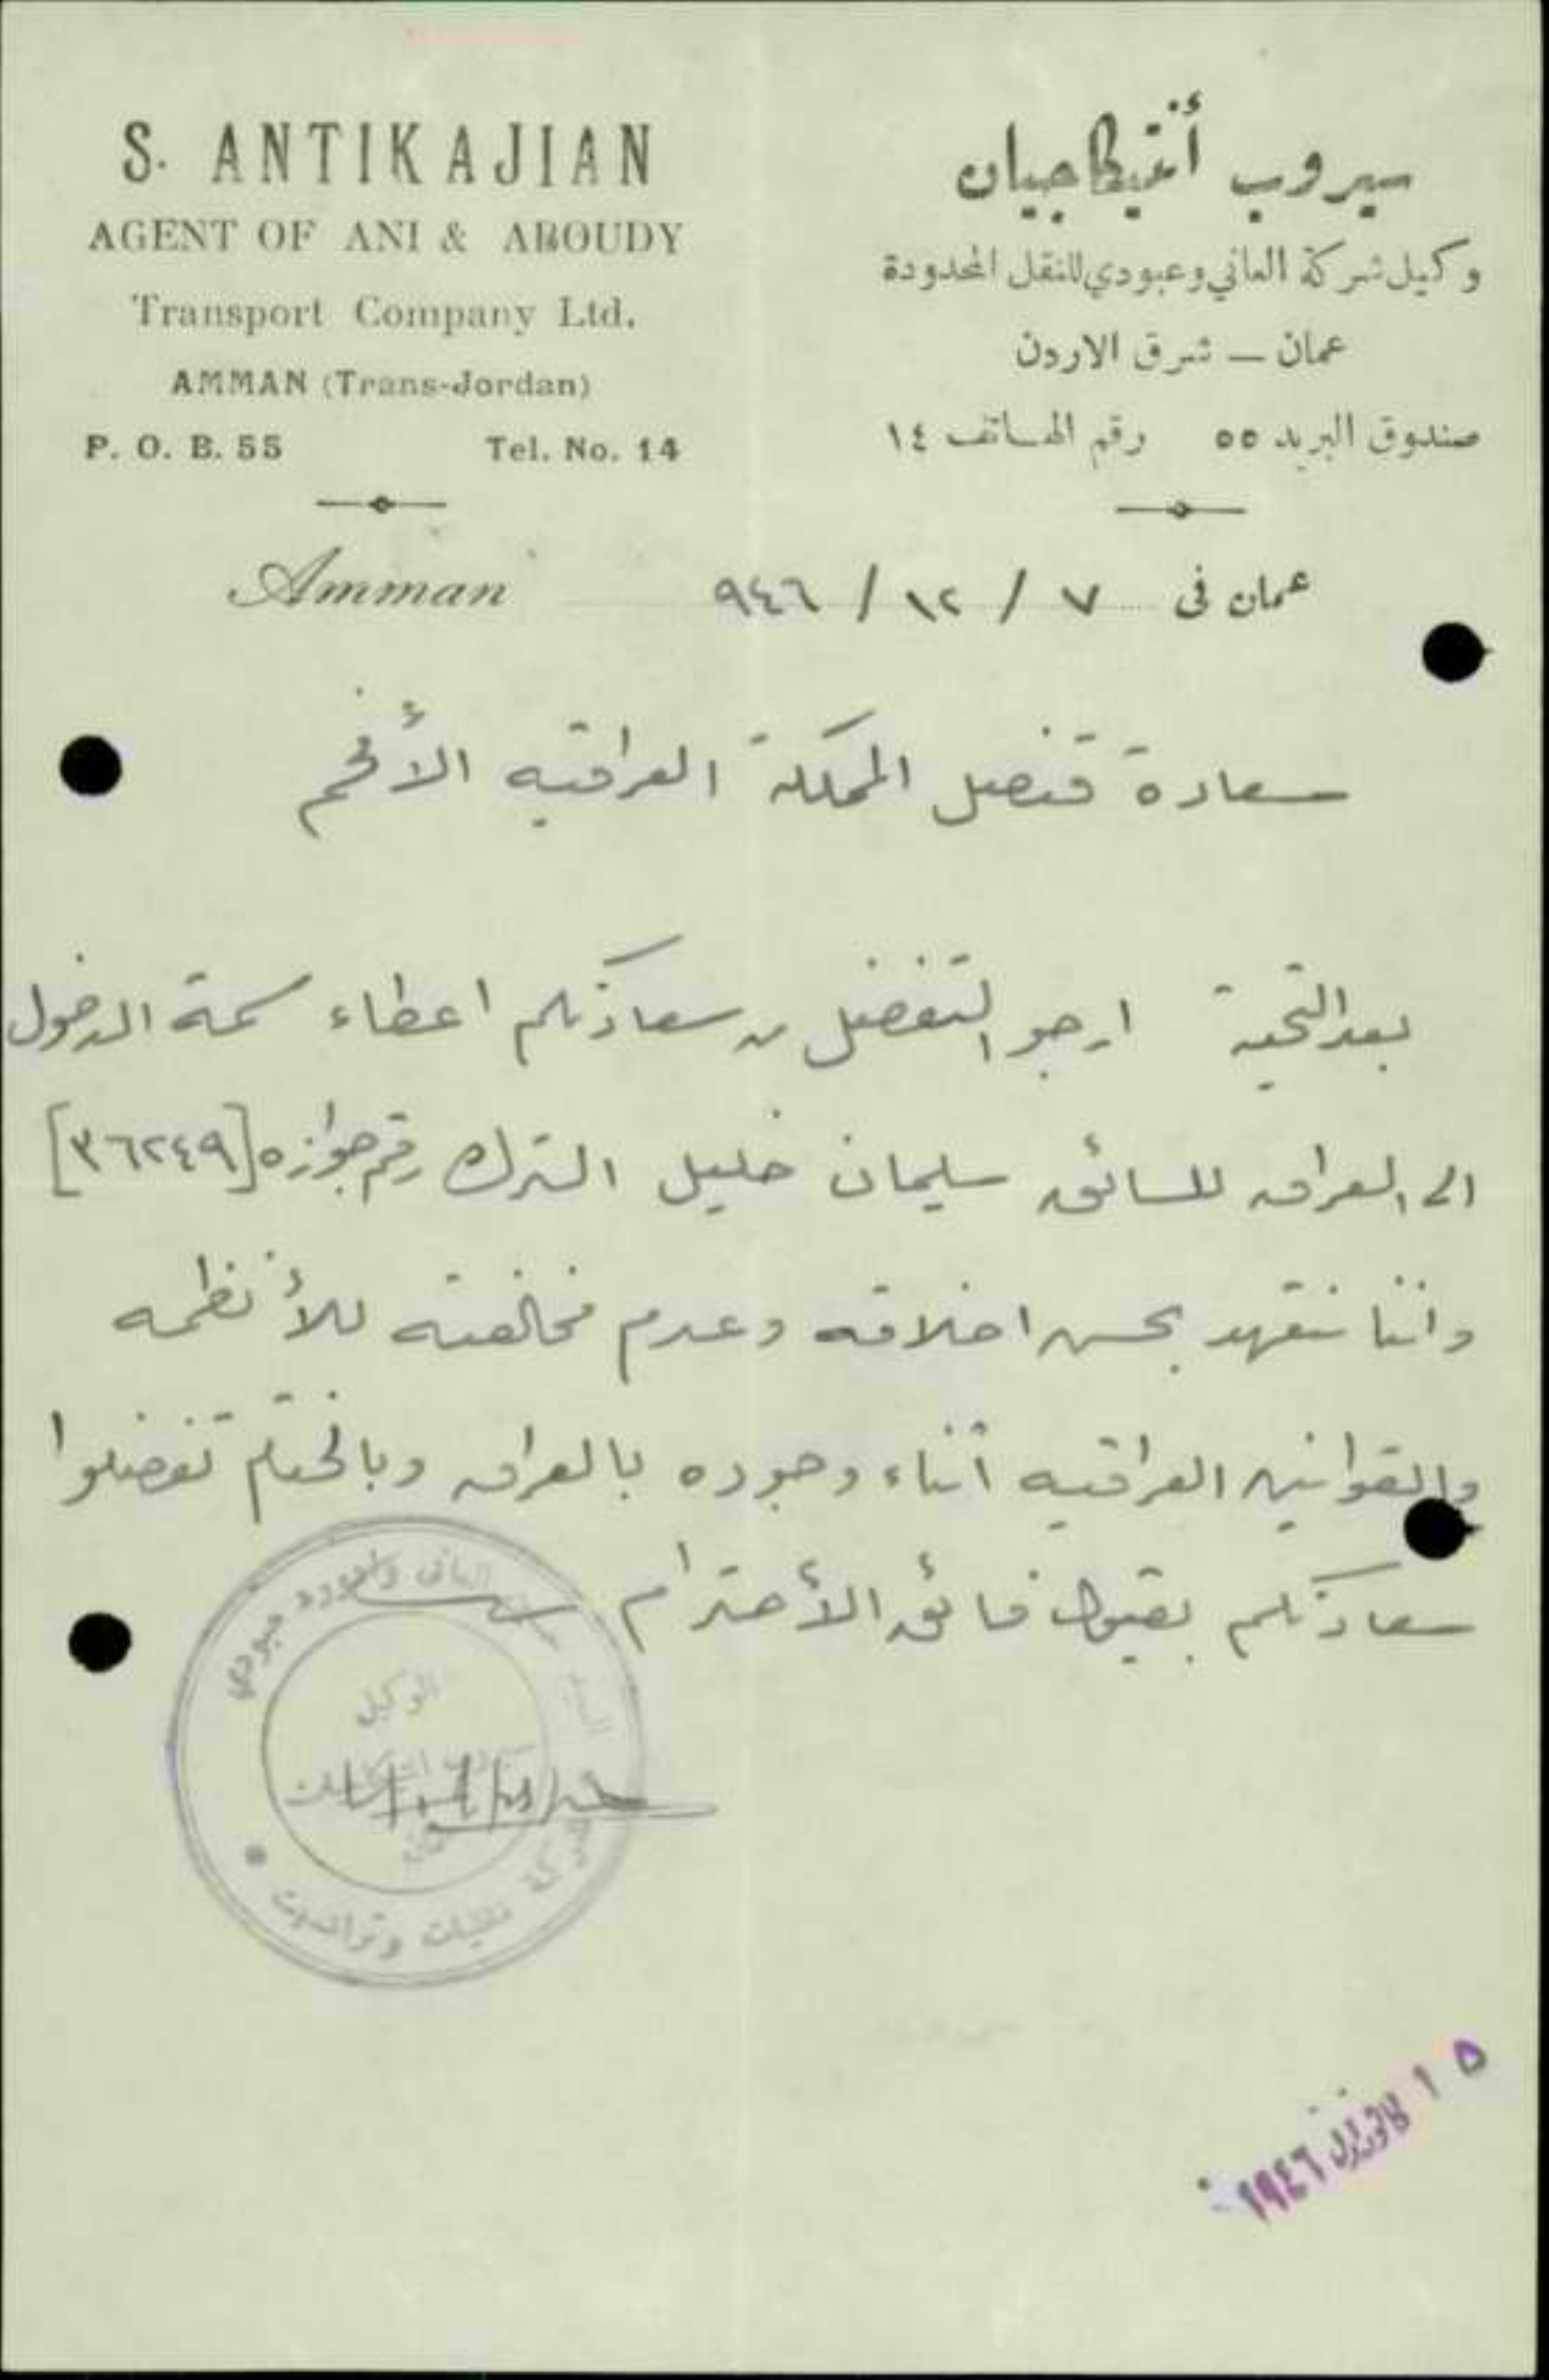 S. ANTIKAJIAN
AGENT OF ANI & ABOUDY
Transport Company Ltd.
AMMAN (Trans-Jordan)
P. O. B. 55 Tel. No. 14
سيروب أنتيكاجيان
وكيل شركة العاني وعبودي للنقل المحدودة
عمان — شرق الاردن
صندوق البريد ٥٥ رقم الهاتف ١٤
Amman
عمان فى ٧ / ١٢ / ٩٤٦
سعادة قنصل المملكة العراقيه الأفخم
بعد التحية ارجو التفضل من سعادتكم اعطاء سمة الدخول
الى العراق للسائق سليمان خليل الترك رقم جوازه [٣٦٢٤٩]
واننا نتعهد بحسن اخلاقه وعدم مخالفته للأنظمه
والقوانين العراقيه أثناء وجوده بالعراق وبالختام تفضلوا
سعادتكم بقبول فائق الأحترام
العاني وداود عبودي
الوكيل
شركة نقليات وترانسيت
١٥ كانون اول ١٩٤٦